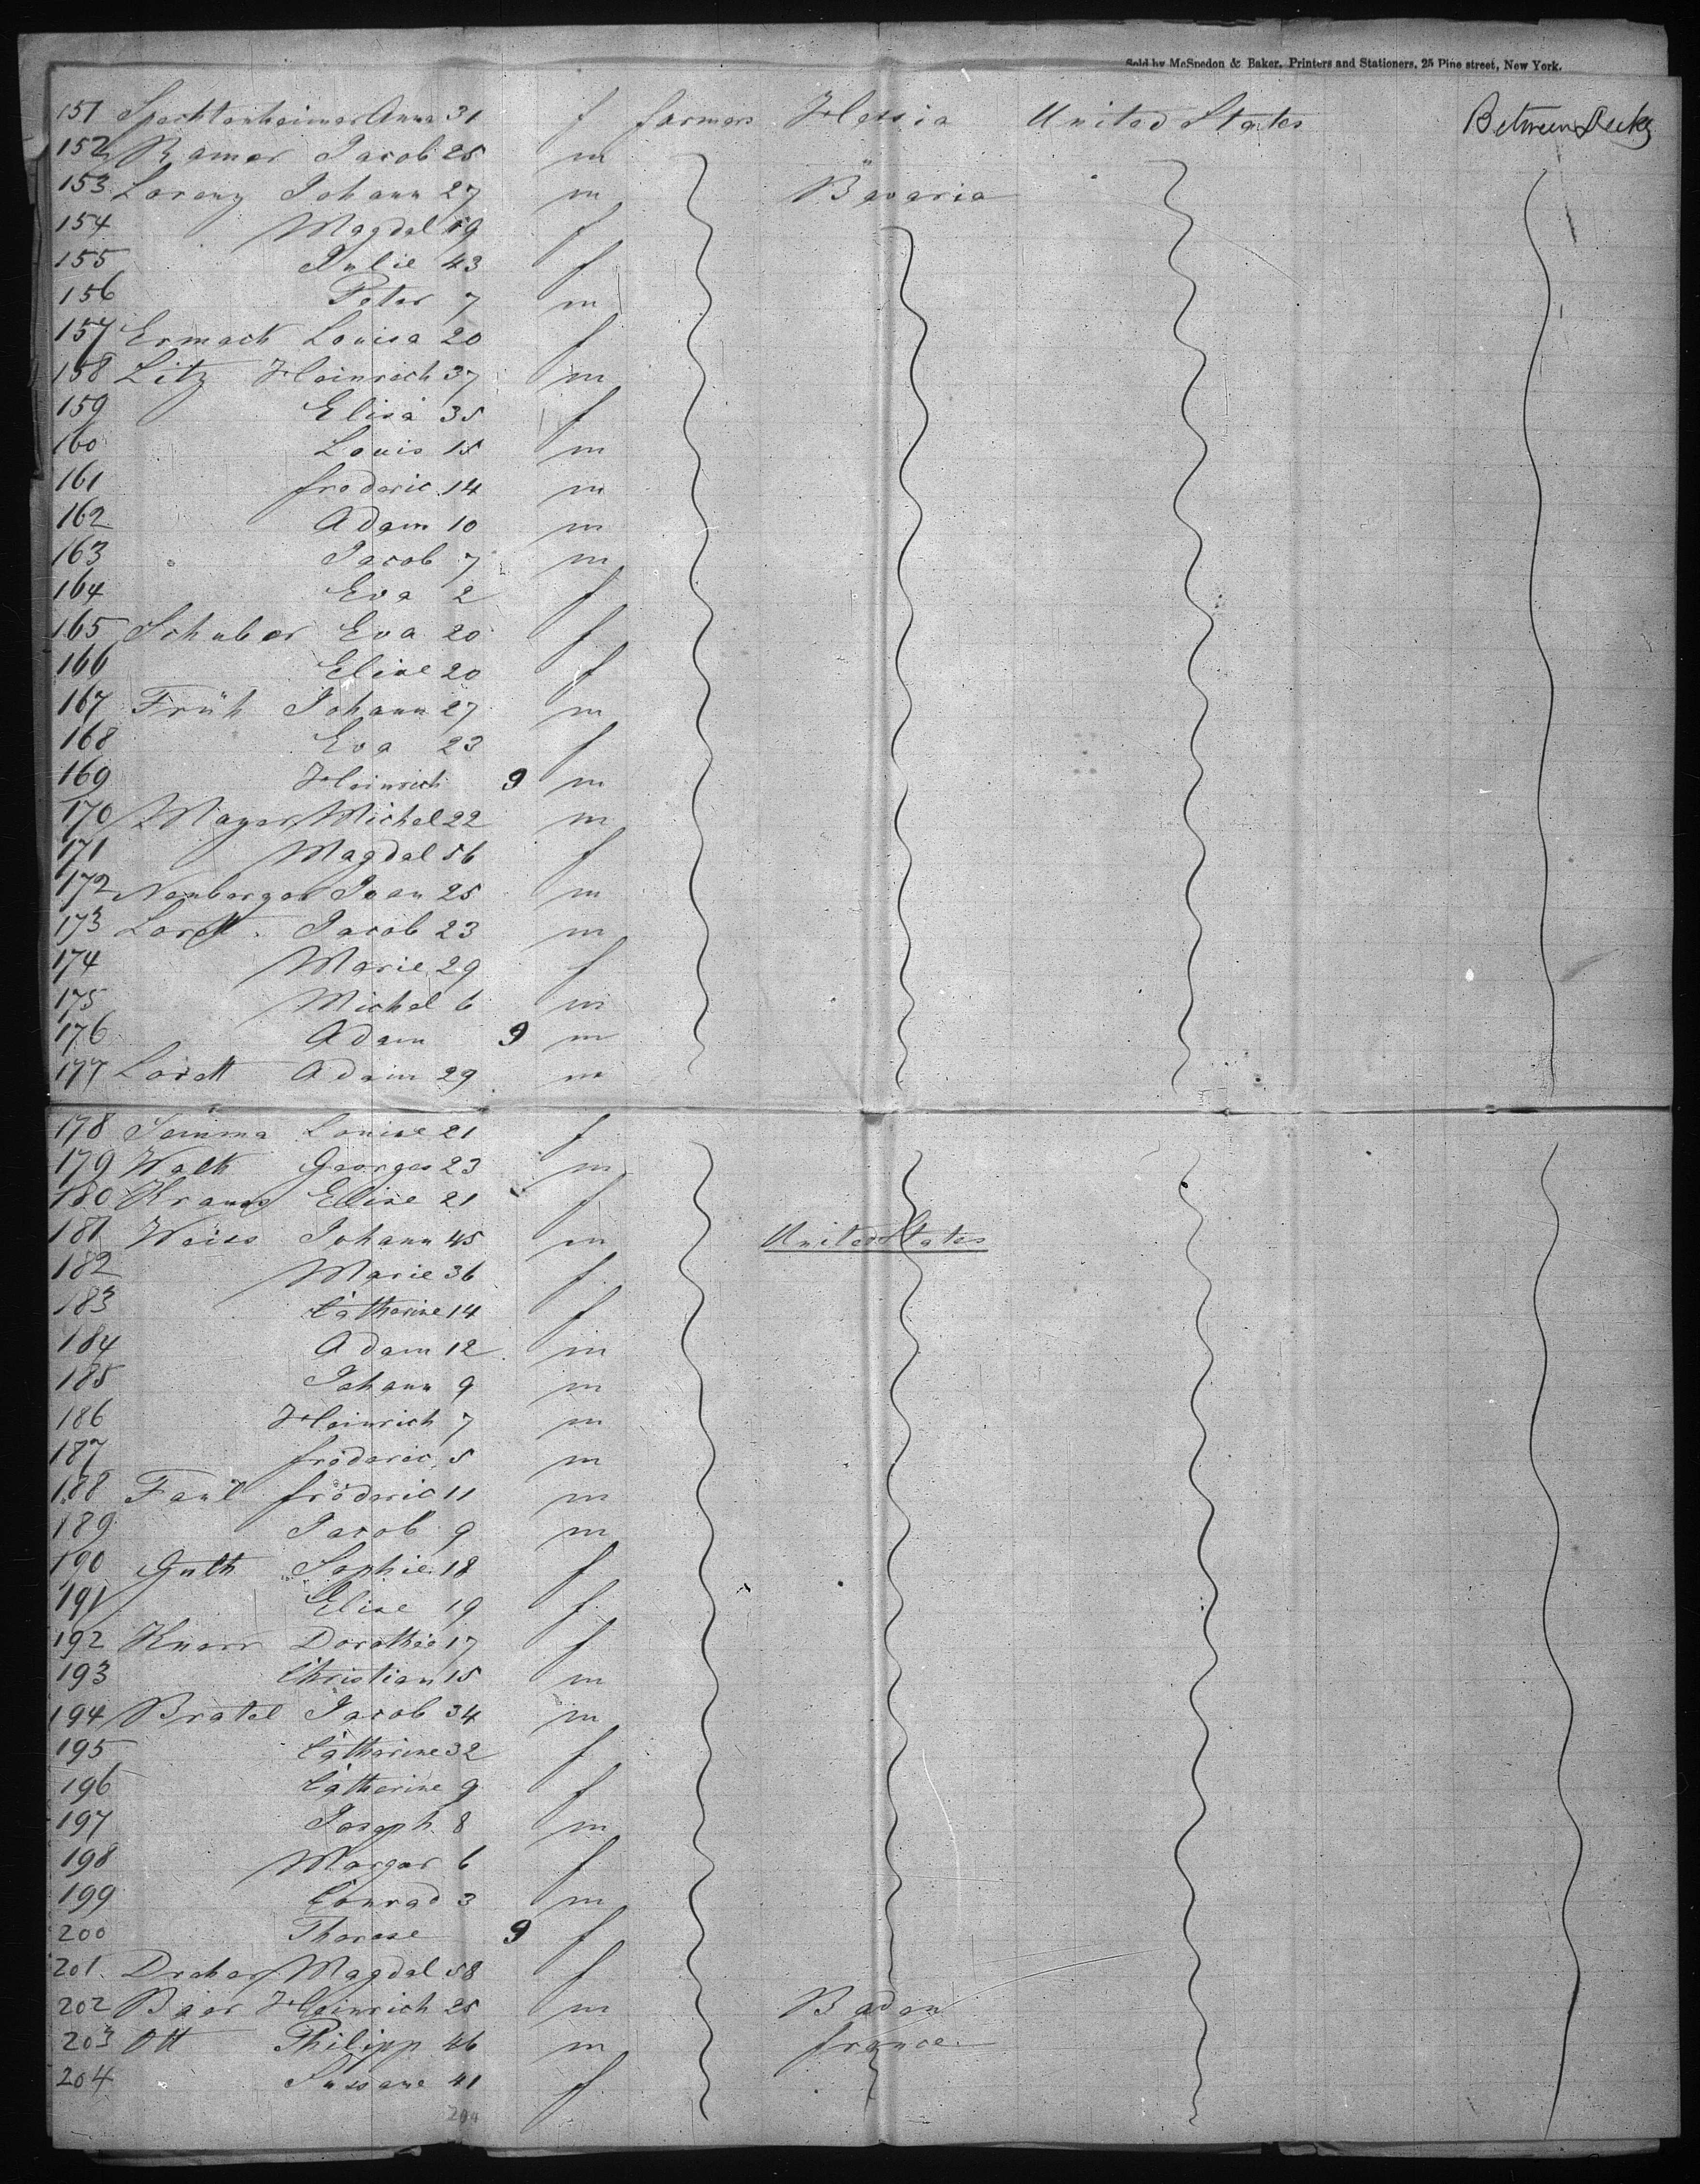 Sold by McSpedon & Baker, Printers and Stationers, 25 Pine street, New York.
151 Spechtenheimer Anna 31 f farmers Hessia United States Between Decks
152 Ramer Jacob 25 m "
153 Lorenz Johann 27 m Bavaria
154 Magdal 59 f
155 Julie 43 f
156 Peter 7 m
157 Ermach Louisa 20 f
158 Litz Heinrich 37 m
159 Elisa 35 f
160 Louis 15 m
161 frederic 14 m
162 Adam 10 m
163 Jacob 7 m
164 Eva 2 f
165 Schuber Eva 20 f
166 Elise 20 f
167 Früh Johann 27 m
168 Eva 23 f
169 Heinrich 9 m
170 Mayer Michel 22 m
171 Magdal 56 f
172 Neuberger Jean 25 m
173 Lorett Jacob 23 m
174 Marie 29 f
175 Michel 6 m
176 Adam 9 m
177 Lorett Adam 29 m
178 Semma Louise 21 f
179 Walk Georges 23 m
180 Elise 21 f
181 Weiss Johann 45 m United States
182 Marie 36 f
183 Catherine 14 f
184 Adam 12 m
185 Johann 9 m
186 Heinrich 7 m
187 fréderic 5 m
188 Faul fréderic 11 m
189 Jacob 9 m
190 Guth Sophie 18 f
191 Elise 19 f
192 Knerr Dorothée 17 f
193 Christian 15 m
194 Bratel Jacob 34 m
195 Catherine 32 f
196 Catherine 9 f
197 Joseph 8 m
198 Margar 6 f
199 Conrad 3 m
200 Therese 9 f
201. Dreher Magdal 58 f
202 Bäer Heinrich 25 m Baden
203 Ott Philipp 46 m france
204 Sussane 41 f
204